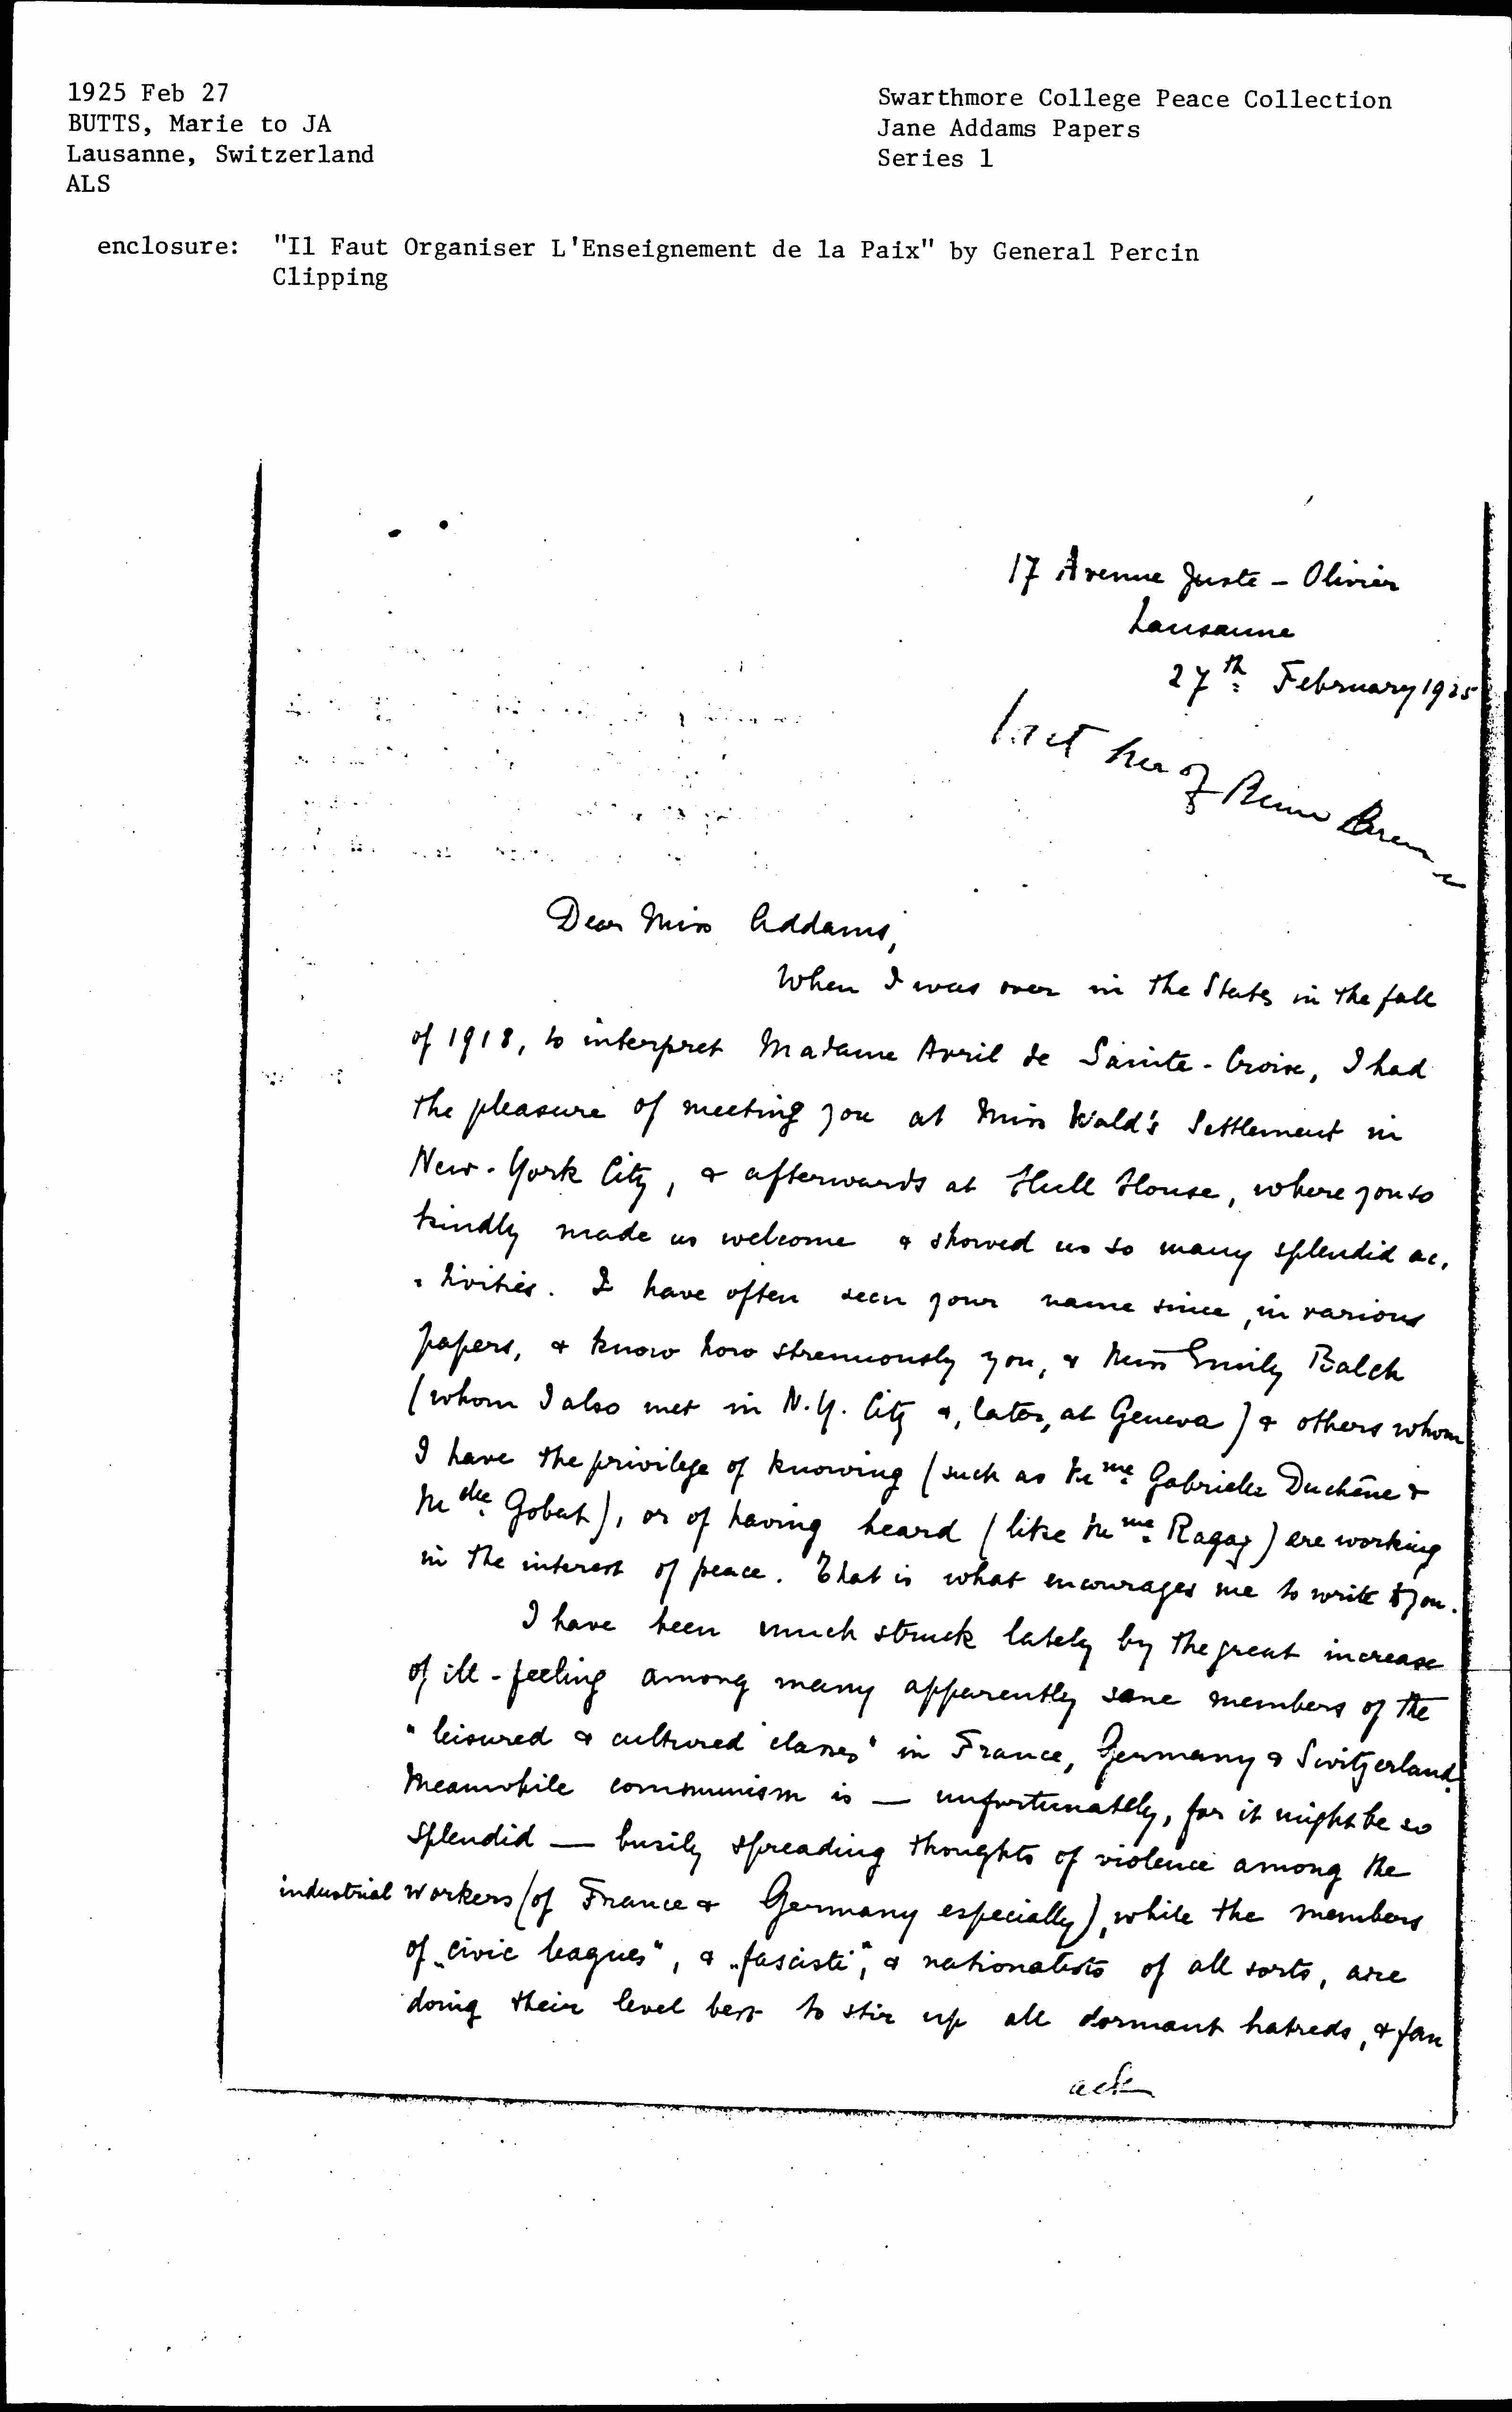 1925 Feb 27
BUTTS, Marie to JA
Lausanne, Switzerland
ALS
Swarthmore College Peace Collection
Jane Addams Papers
Series 1
enclosure: "Il Faut Organiser L'Enseignement de la Paix" by General Percin
Clipping
17 Avenue Juste-Olivier
Lausanne
27th February 1925
her of
Dear Miss Addams,
When I was over in the States in the fall
of 1918, to interpret Madame Avril de Sainte-Croix, I had
the pleasure of meeting you at Miss Wald's Settlement in
New-York City, & afterwards at Hull House, where you so
kindly made us welcome & showed us so many splendid ac-
-tivities. I have often seen your name since, in various
papers, & know how strenuously you, & Miss Emily Balch
(whom I also met in N.Y. City &, later, at Geneva) & others whom
I have the privilege of knowing (such as Mme Gabrielle Duchêne &
Mdlle Gobat), or of having heard (like Mme Ragaz) are working
in the interest of peace. That is what encourages me to write to you.
I have been much struck lately by the great increase
of ill-feeling among many apparently sane members of the
"leisured & cultured classes" in France, Germany & Switzerland.
Meanwhile communism is — unfortunately, for it might be so
splendid — busily spreading thoughts of violence among the
industrial workers (of France & Germany especially), while the members
of „civic leagues", & „fascisti", & nationalists of all sorts, are
doing their level best to stir up all dormant hatreds, & fan
ack